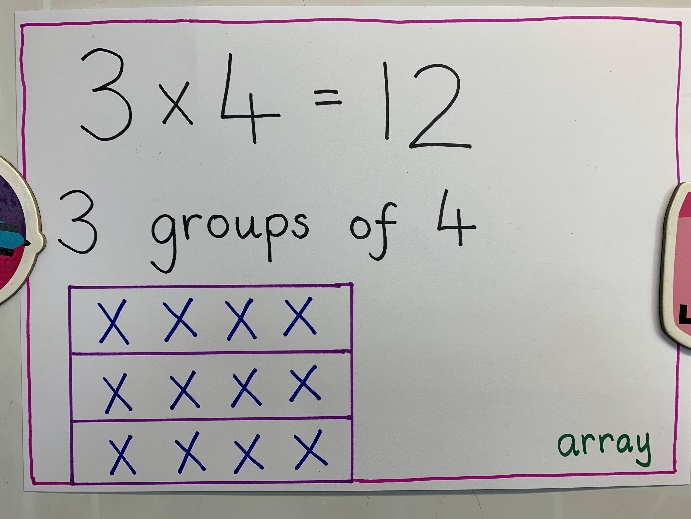 3 × 4 = 12
3 groups of 4
X X X X
X X X X
X X X X
array